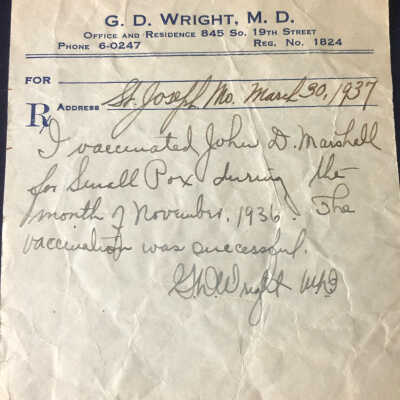 G. D. WRIGHT, M. D.
OFFICE AND RESIDENCE 845 SO. 19TH STREET
PHONE 6-0247 REG. NO. 1824
FOR
Rx ADDRESS St. Joseph Mo. March 30, 1937
I vaccinated John D. Marshell
for Small Pox during the
month of November, 1936. The
vaccination was successful.
G.D. Wright M.D.